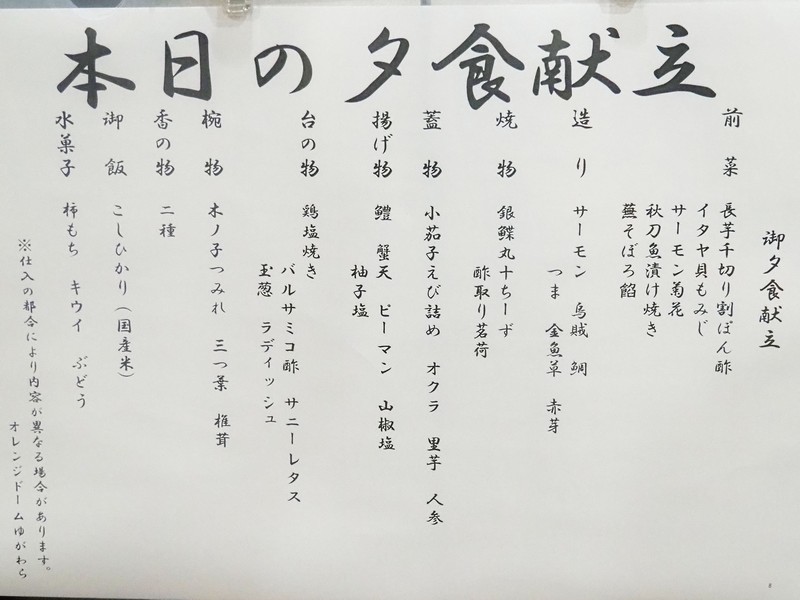 本日の夕食献立
御夕食献立
前菜 長芋千切り割ぽん酢
イタヤ貝もみじ
サーモン菊花
秋刀魚漬け焼き
蕪そぼろ餡
造り サーモン 烏賊 鯛
つま 金魚草 赤芽
焼物 銀鰈丸十ちーず
酢取り茗荷
蓋物 小茄子えび詰め オクラ 里芋 人参
揚げ物 鱧 蟹天 ピーマン 山椒塩
柚子塩
台の物 鶏塩焼き
バルサミコ酢 サニーレタス
玉葱 ラディッシュ
椀物 木ノ子つみれ 三つ葉 椎茸
香の物 二種
御飯 こしひかり(国産米)
水菓子 柿もち キウイ ぶどう
※仕入の都合により内容が異なる場合があります。
オレンジドームゆがわら